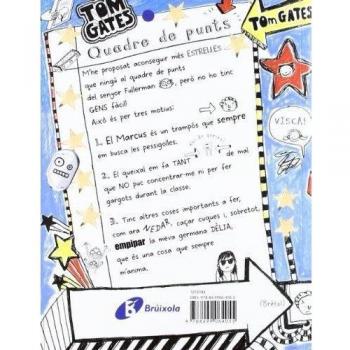 TOM GATES
TOM GATES
Quadre de punts
M'he proposat aconseguir més ESTRELLES
que ningú al quadre de punts
del senyor Fullerman, però no ho tinc
GENS fàcil!
Això és per tres motius:
VISCA!
1. El Marcus és un trampós que sempre
em busca les pessigolles.
2. El queixal em fa TANT de mal
que NO puc concentrar-me ni per fer
gargots durant la classe.
3. Tinc altres coses importants a fer,
com ara NEDAR, caçar cuques i, sobretot,
empipar la meva germana DÈLIA,
que és una cosa que sempre
m'anima.
Brúixola